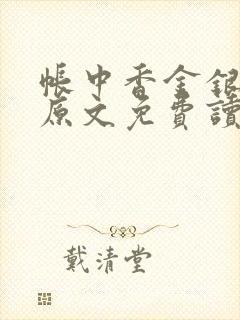 帳中香金銀
原文免費讀
戴清堂